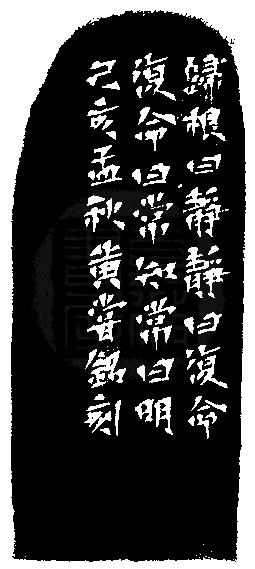 歸根曰靜靜曰復命
復命曰常知常曰明
己亥孟秋黄嘗銘刻